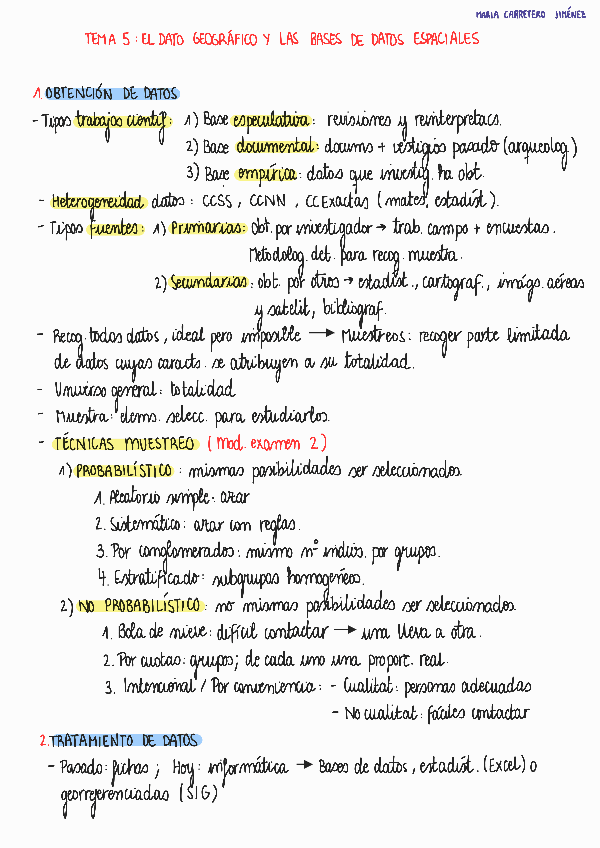 MARIA CARRETERO JIMÉNEZ
TEMA 5: EL DATO GEOGRÁFICO Y LAS BASES DE DATOS ESPACIALES
1. OBTENCIÓN DE DATOS
- Tipos trabajos científ: 1) Base especulativa: revisiones y reinterpretacs.
2) Base documental: docums + vestigios pasado (arqueolog.)
3) Base empírica: datos que investig. ha obt.
- Heterogeneidad datos: CCSS, CCNN, CCExactas (mates, estadíst).
- Tipos fuentes: 1) Primarias: Obt. por investigador → trab. campo + encuestas.
Metodolog. det. para recog. muestra.
2) Secundarias: obt. por otros → estadíst., cartograf., imágs. aéreas
y satelit, bibliograf.
- Recog. todos datos, ideal pero imposible → Muestreos: recoger parte limitada
de datos cuyas caracts. se atribuyen a su totalidad.
- Universo general: totalidad
- Muestra: elems. selecc. para estudiarlos.
- TÉCNICAS MUESTREO (Mod. examen 2)
1) PROBABILÍSTICO: mismas posibilidades ser seleccionados
1. Aleatorio simple: azar
2. Sistemático: azar con reglas.
3. Por conglomerados: mismo nº indivis. por grupos.
4. Estratificado: subgrupos homogéneos.
2) NO PROBABILÍSTICO: no mismas posibilidades ser seleccionados.
1. Bola de nieve: difícil contactar → una lleva a otra.
2. Por cuotas: grupos; de cada uno una proporc. real.
3. Intencional / Por conveniencia: - Cualitat: personas adecuadas
- No cualitat: fáciles contactar
2. TRATAMIENTO DE DATOS
- Pasado: fichas; Hoy: informática → Bases de datos, estadíst. (Excel) o
georreferenciadas (SIG)